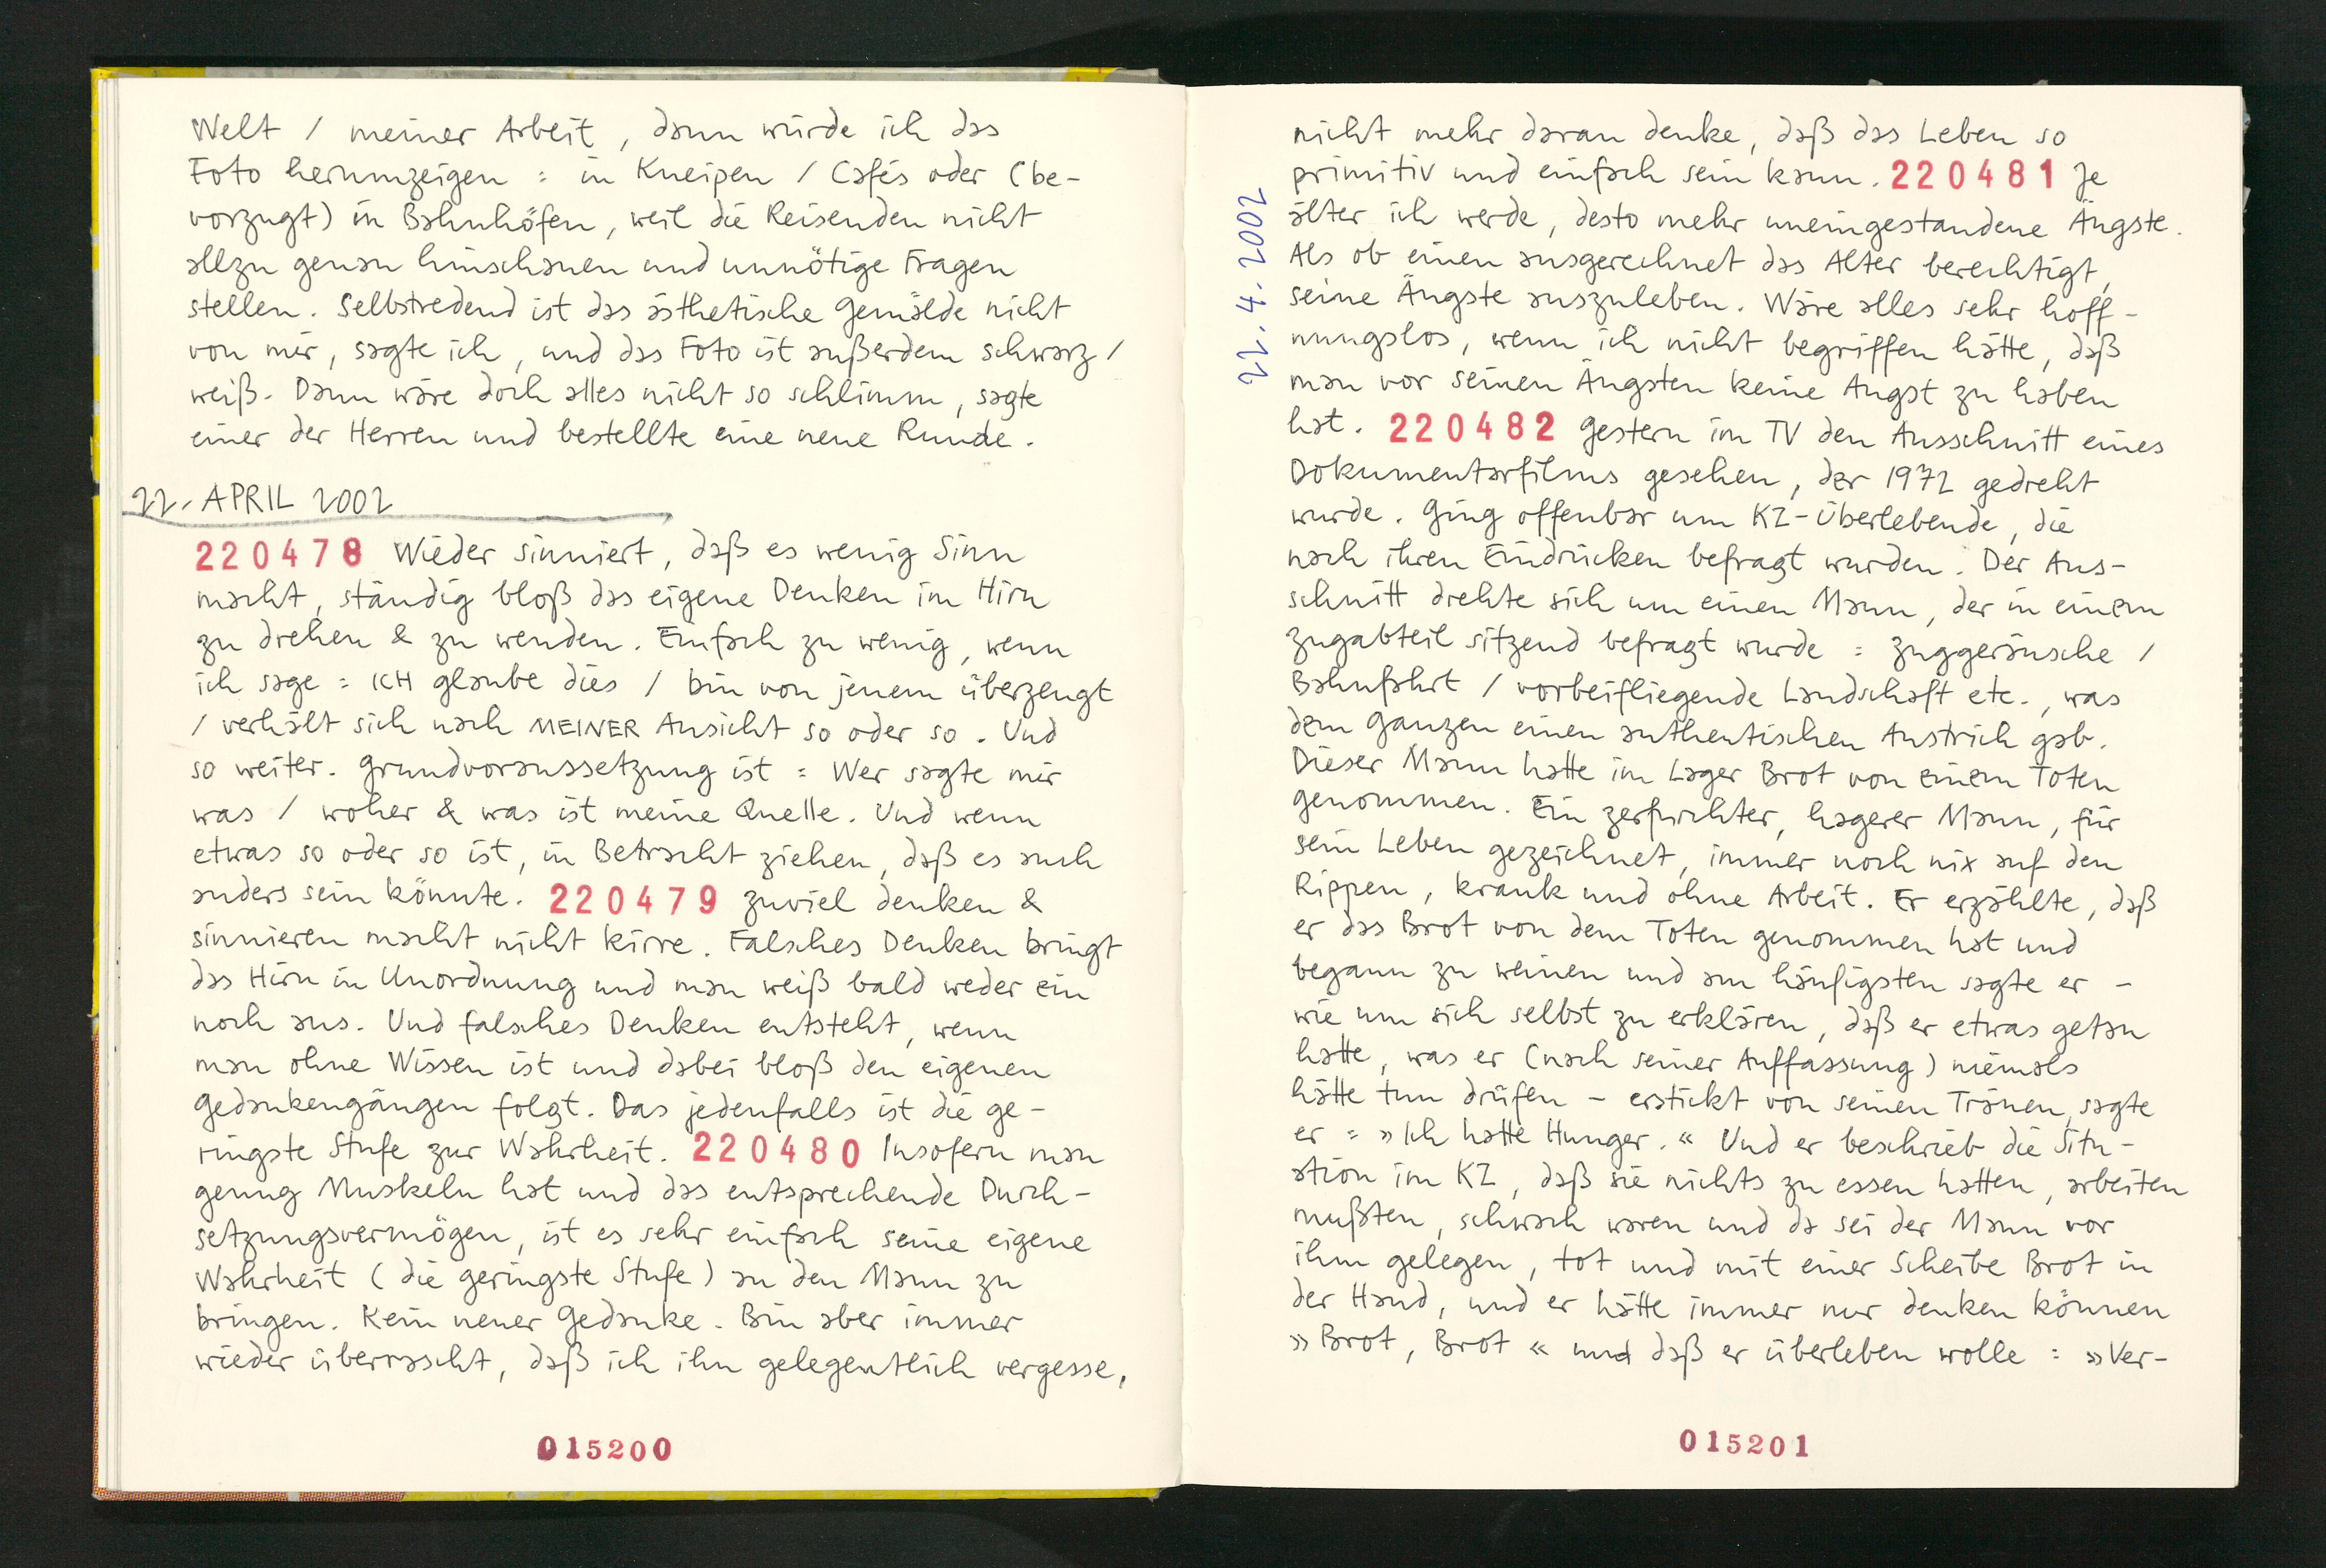 Welt / meiner Arbeit, dann würde ich das
Foto herumzeigen : in Kneipen / Cafés oder (be-
vorzugt) in Bahnhöfen, weil die Reisenden nicht
allzu genau hinschauen und unnötige Fragen
stellen. Selbstredend ist das ästhetische Gemälde nicht
von mir, sagte ich, und das Foto ist außerdem schwarz/
weiß. Dann wäre doch alles nicht so schlimm, sagte
einer der Herren und bestellte eine neue Runde.
22. APRIL 2002
220478 Wieder sinniert, daß es wenig Sinn
macht, ständig bloß das eigene Denken im Hirn
zu drehen & zu wenden. Einfach zu wenig, wenn
ich sage : ICH glaube dies / bin von jenem überzeugt
/ verhält sich nach MEINER Ansicht so oder so. Und
so weiter. Grundvoraussetzung ist : Wer sagte mir
was / woher & was ist meine Quelle. Und wenn
etwas so oder so ist, in Betracht ziehen, daß es auch
anders sein könnte. 220479 Zuviel denken &
sinnieren macht nicht kirre. Falsches Denken bringt
das Hirn in Unordnung und man weiß bald weder ein
noch aus. Und falsches Denken entsteht, wenn
man ohne Wissen ist und dabei bloß den eigenen
Gedankengängen folgt. Das jedenfalls ist die ge-
ringste Stufe zur Wahrheit. 220480 Insofern man
genug Muskeln hat und das entsprechende Durch-
setzungsvermögen, ist es sehr einfach seine eigene
Wahrheit (die geringste Stufe) an den Mann zu
bringen. Kein neuer Gedanke. Bin aber immer
wieder überrascht, daß ich ihn gelegentlich vergesse,
015200
22. 4. 2002
nicht mehr daran denke, daß das Leben so
primitiv und einfach sein kann. 220481 Je
älter ich werde, desto mehr uneingestandene Ängste.
Als ob einen ausgerechnet das Alter berechtigt,
seine Ängste auszuleben. Wäre alles sehr hoff-
nungslos, wenn ich nicht begriffen hätte, daß
man vor seinen Ängsten keine Angst zu haben
hat. 220482 Gestern im TV den Ausschnitt eines
Dokumentarfilms gesehen, der 1972 gedreht
wurde. Ging offenbar um KZ-Überlebende, die
nach ihren Eindrücken befragt wurden. Der Aus-
schnitt drehte sich um einen Mann, der in einem
Zugabteil sitzend befragt wurde : Zuggeräusche /
Bahnfahrt / vorbeifliegende Landschaft etc., was
dem Ganzen einen authentischen Anstrich gab.
Dieser Mann hatte im Lager Brot von einem Toten
genommen. Ein zerfurchter, hagerer Mann, für
sein Leben gezeichnet, immer noch nix auf den
Rippen, krank und ohne Arbeit. Er erzählte, daß
er das Brot von dem Toten genommen hat und
begann zu weinen und am häufigsten sagte er -
wie um sich selbst zu erklären, daß er etwas getan
hatte, was er (nach seiner Auffassung) niemals
hätte tun drüfen - erstickt von seinen Tränen, sagte
er : »Ich hatte Hunger.« Und er beschrieb die Situ-
ation im KZ, daß sie nichts zu essen hatten, arbeiten
mußten, schwach waren und da sei der Mann vor
ihm gelegen, tot und mit einer Scheibe Brot in
der Hand, und er hätte immer nur denken können
»Brot, Brot« und daß er überleben wolle : »Ver-
015201